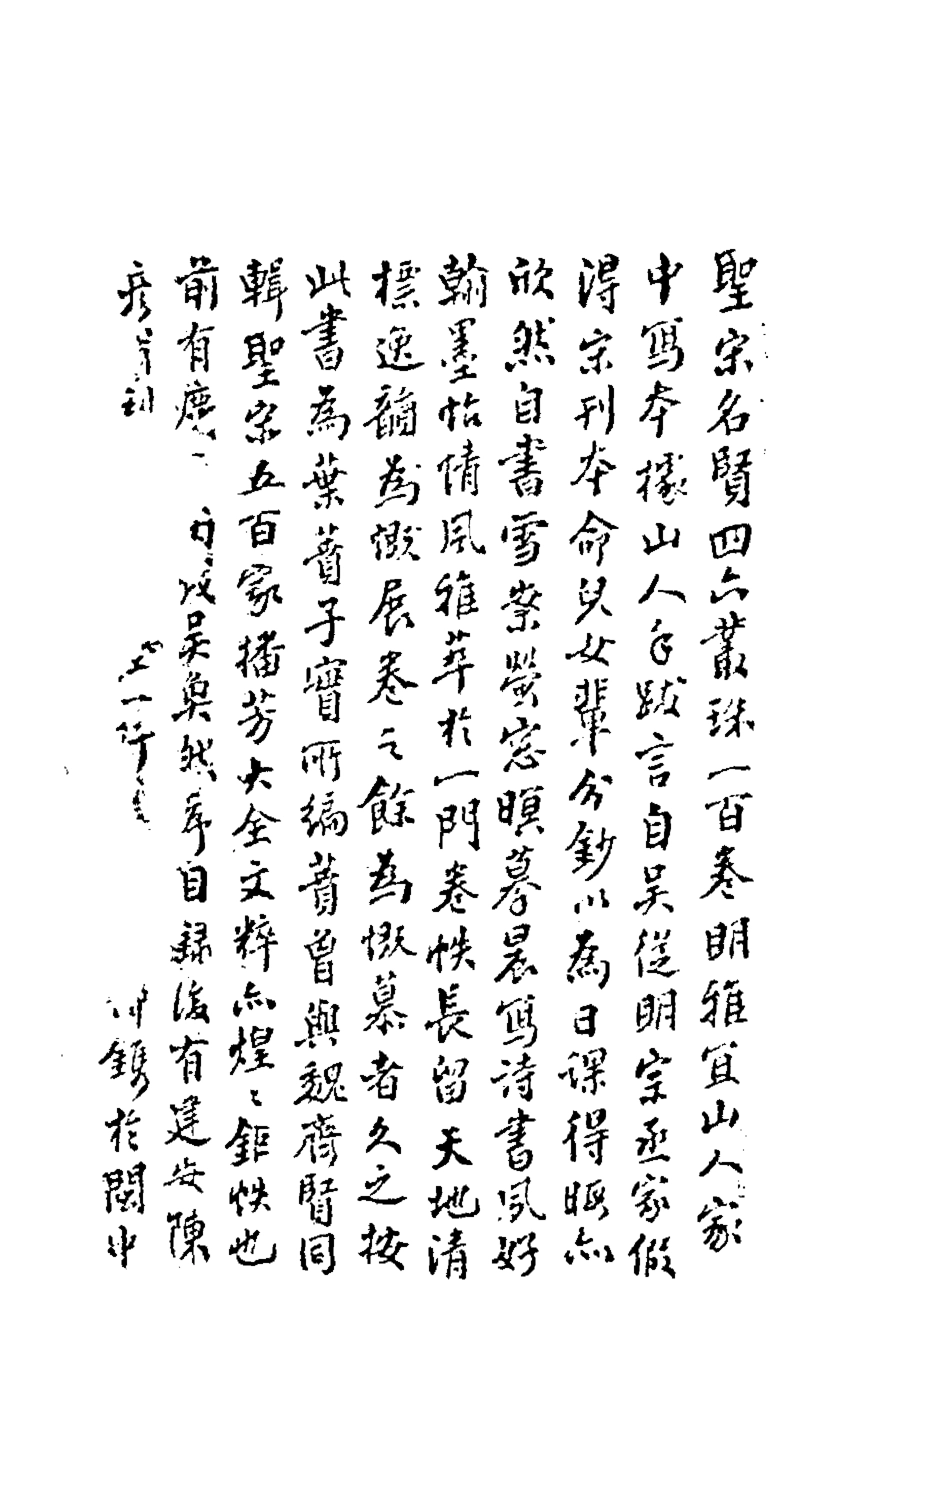 聖宋名賢四六叢珠一百卷明雅宜山人家
中寫本據山人手跋言自吳從明宗丞家假
得宋刊本命兒女輩分鈔以為日課得暇亦
欣然自書雪案螢窓暝摹晨寫詩書夙好
翰墨怡情風雅萃於一門卷帙長留天地清
標逸韻為慨展卷之餘為慨慕者久之按
此書為葉蕡子實所編蕡曾與魏齊賢同
輯聖宋五百家播芳大全文粹亦煌〻鉅帙也
前有慶 戊吳奐然序目録後有建安陳
彦 刻 一行 鐫於閩中